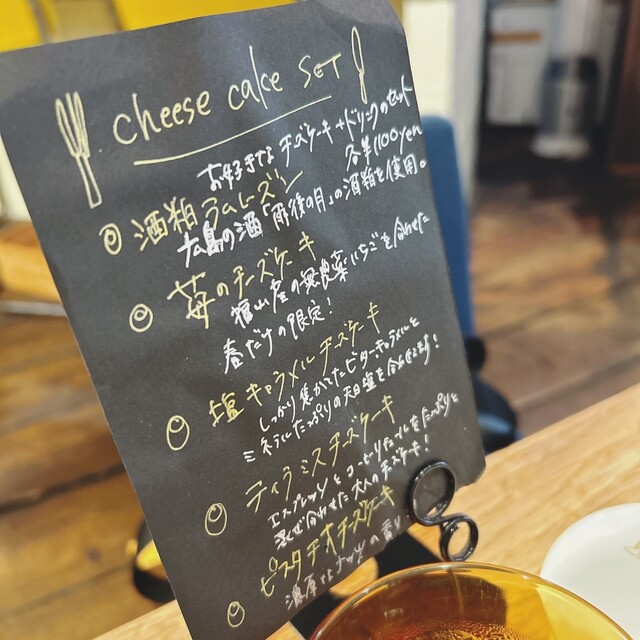 cheese cake SET
お好きなチーズケーキ+ドリンクのセット
各¥1100yen
酒粕ラムレーズン
広島の酒「雨後の月」の酒粕を使用。
苺のチーズケーキ
福山産の無農薬いちごを合わせた
春だけの限定!
塩キャラメルチーズケーキ
しっかり焦がしたビターキャラメルと
ミネラルたっぷりの天日塩を合わせてます!
ティラミスチーズケーキ
エスプレッソとコーヒーリキュールをたっぷりと
混ぜ合わせた大人のチーズケーキ!
ピスタチオチーズケーキ
濃厚なナッツの香り